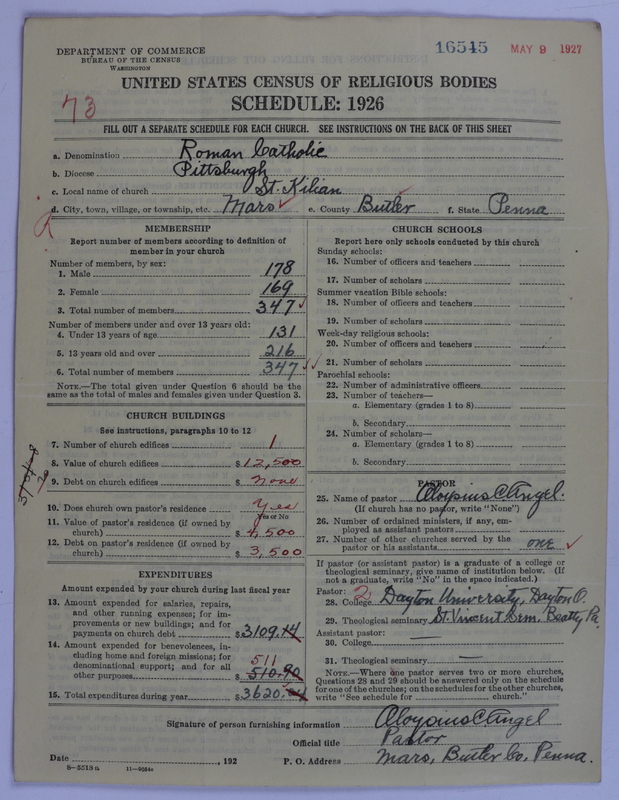 16545 MAY 9 1927
DEPARTMENT OF COMMERCE
BUREAU OF THE CENSUS
WASHINGTON
UNITED STATES CENSUS OF RELIGIOUS BODIES
SCHEDULE: 1926
73
FILL OUT A SEPARATE SCHEDULE FOR EACH CHURCH. SEE INSTRUCTIONS ON THE BACK OF THIS SHEET
a. Denomination Roman Catholic
b. Diocese Pittsburgh
c. Local name of church St. Kilian
d. City, town, village, or township, etc. Mars e. County Butler f. State Penna
MEMBERSHIP
Report number of members according to definition of
member in your church
Number of members, by sex:
1. Male 178
2. Female 169
3. Total number of members 347
Number of members under and over 13 years old:
4. Under 13 years of age 131
5. 13 years old and over 216
6. Total number of members 347
NOTE.—The total given under Question 6 should be the
same as the total of males and females given under Question 3.
CHURCH BUILDINGS
See instructions, paragraphs 10 to 12
7. Number of church edifices 1
8. Value of church edifices $ 12,500
9. Debt on church edifices $ None
10. Does church own pastor's residence Yes
Yes or No
11. Value of pastor's residence (if owned by
church) $ 4,500
12. Debt on pastor's residence (if owned by
church) $ 3,500
EXPENDITURES
Amount expended by your church during last fiscal year
13. Amount expended for salaries, repairs,
and other running expenses; for im-
provements or new buildings; and for
payments on church debt $ 3109.14
14. Amount expended for benevolences, in-
cluding home and foreign missions; for
denominational support; and for all 511
other purposes $ 510.90
15. Total expenditures during year $ 3620.04
CHURCH SCHOOLS
Report here only schools conducted by this church
Sunday schools:
16. Number of officers and teachers
17. Number of scholars
Summer vacation Bible schools:
18. Number of officers and teachers
19. Number of scholars
Week-day religious schools:
20. Number of officers and teachers
21. Number of scholars
Parochial schools:
22. Number of administrative officers
23. Number of teachers—
a. Elementary (grades 1 to 8)
b. Secondary
24. Number of scholars—
a. Elementary (grades 1 to 8)
b. Secondary
PASTOR
25. Name of pastor Aloysius C Angel.
(If church has no pastor, write "None")
26. Number of ordained ministers, if any, em-
ployed as assistant pastors
27. Number of other churches served by the
pastor or his assistants one
If pastor (or assistant pastor) is a graduate of a college or
theological seminary, give name of institution below. (If
not a graduate, write "No" in the space indicated.)
Pastor: 2
28. College Dayton University, Dayton O.
29. Theological seminary St. Vincent Sem. Beatty Pa.
Assistant pastor:
30. College —
31. Theological seminary —
NOTE.—Where one pastor serves two or more churches,
Questions 28 and 29 should be answered only on the schedule
for one of the churches; on the schedules for the other churches,
write "See schedule for church."
Signature of person furnishing information Aloysius C Angel
Official title Pastor
Date , 192 P. O. Address Mars, Butler Co. Penna.
8-5518a 11-9064